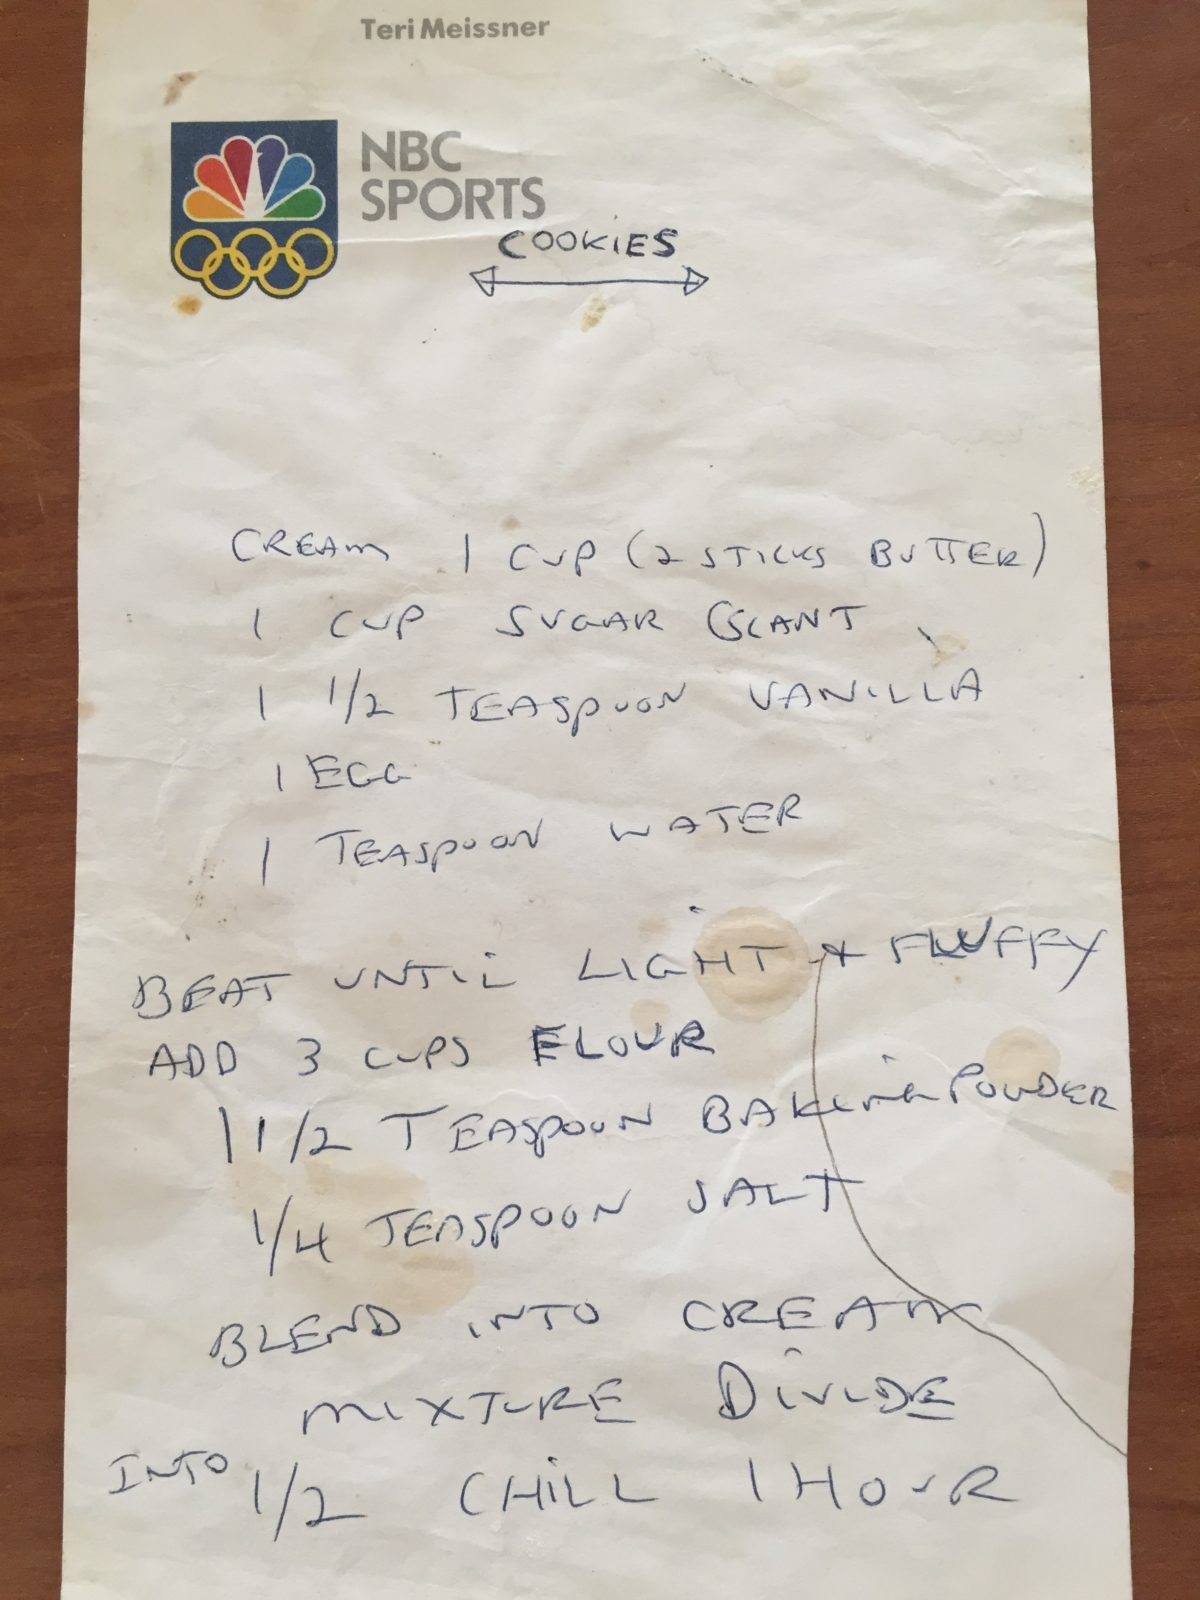 Teri Meissner
NBC
SPORTS
COOKIES
CREAM 1 CUP (2 STICKS BUTTER)
1 CUP SUGAR (SCANT
1 1/2 TEASPOON VANILLA
1 EGG
1 TEASPOON WATER
BEAT UNTIL LIGHT + FLUFFY
ADD 3 CUPS FLOUR
1 1/2 TEASPOON BAKING POWDER
1/4 TEASPOON SALT
BLEND INTO CREAM
MIXTURE DIVIDE
INTO 1/2 CHILL 1 HOUR